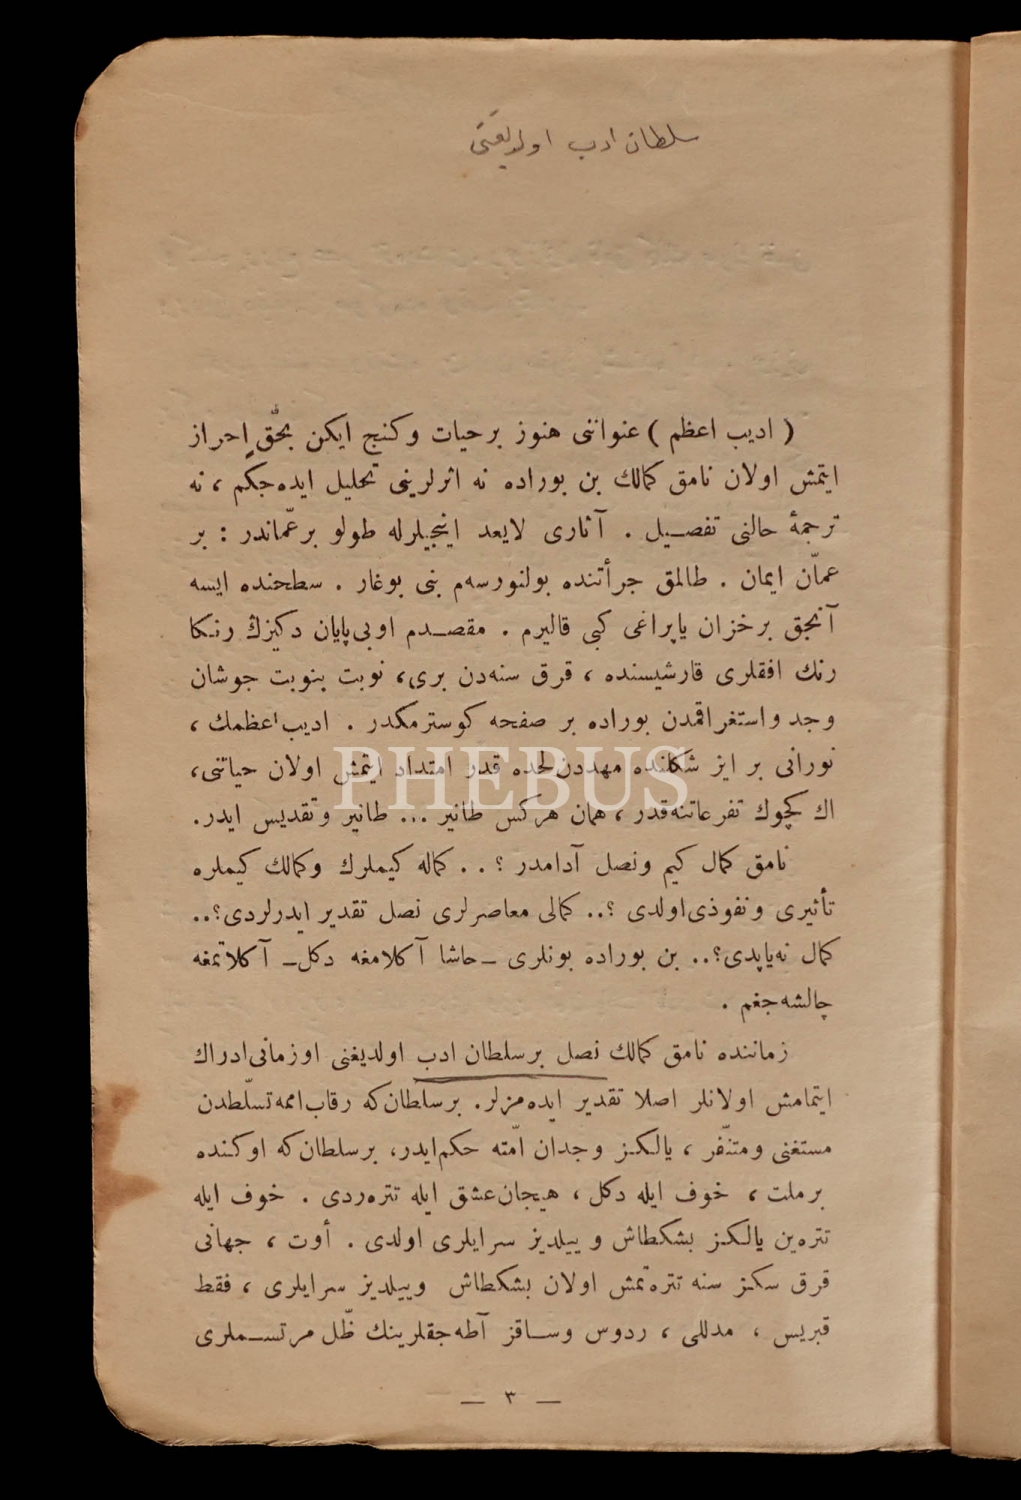 سلطان ادب اولديغنى
( اديب اعظم ) عنواننى هنوز برحيات وكنج ايكن بحقٍّ احراز
ايتمش اولان نامق كمالك بن بوراده نه اثرلرينى تحليل ايده‌جكم ، نه
ترجمۀ حالنى تفصيل . آثارى لايعد اينجيلرله طولو برعمّاندر : بر
عمّان ايمان . طالمق جرأتنده بولنورسه‌م بنى بوغار . سطحنده ايسه
آنجق برخزان ياپراغى كبى قاليرم . مقصدم اوبى‌پايان دكيزڭ رنكا
رنك افقلرى قارشيسنده ، قرق سنه‌دن برى، نوبت بنوبت جوشان
وجد واستغراقمدن بوراده بر صفحه كوسترمكدر . اديب اعظمك ،
نورانى بر ايز شكلنده مهددن‌لحده قدر امتداد ايتمش اولان حياتنى،
PHEBUS
اك كچوك تفرعاتنه‌قدر ، همان هركس طانير ... طانير وتقديس ايدر.
نامق كمال كيم ونصل آدامدر ؟ . . كماله كيملرك وكمالك كيملره
تأثيرى ونفوذى‌اولدى ؟.. كمالى معاصرلرى نصل تقدير ايدرلردى؟..
كمال نه‌ياپدى؟.. بن بوراده بونلرى ـ حاشا آكلامغه دكل ـ آكلاتمغه
چالشه‌جغم .
زماننده نامق كمالك نصل برسلطان ادب اولديغنى اوزمانى‌ادراك
ايتمامش اولانلر اصلا تقدير ايده‌مزلر. برسلطان‌كه رقاب‌اممه‌تسلّطدن
مستغنى ومتنفّر ، يالكز وجدان امّته حكم‌ايدر، برسلطان‌كه اوكنده
برملت ، خوف ايله دكل ، هيجان‌عشق ايله تتره‌ردى . خوف ايله
تتره‌ين يالكز بشكطاش وييلديز سرايلرى اولدى . أوت ، جهانى
قرق سكز سنه تتره‌تمش اولان بشكطاش وييلديز سرايلرى ، فقط
قبريس ، مدللى ، ردوس وساقز آطه‌جقلرينك ظلّ مرتسملرى
— ٣ —